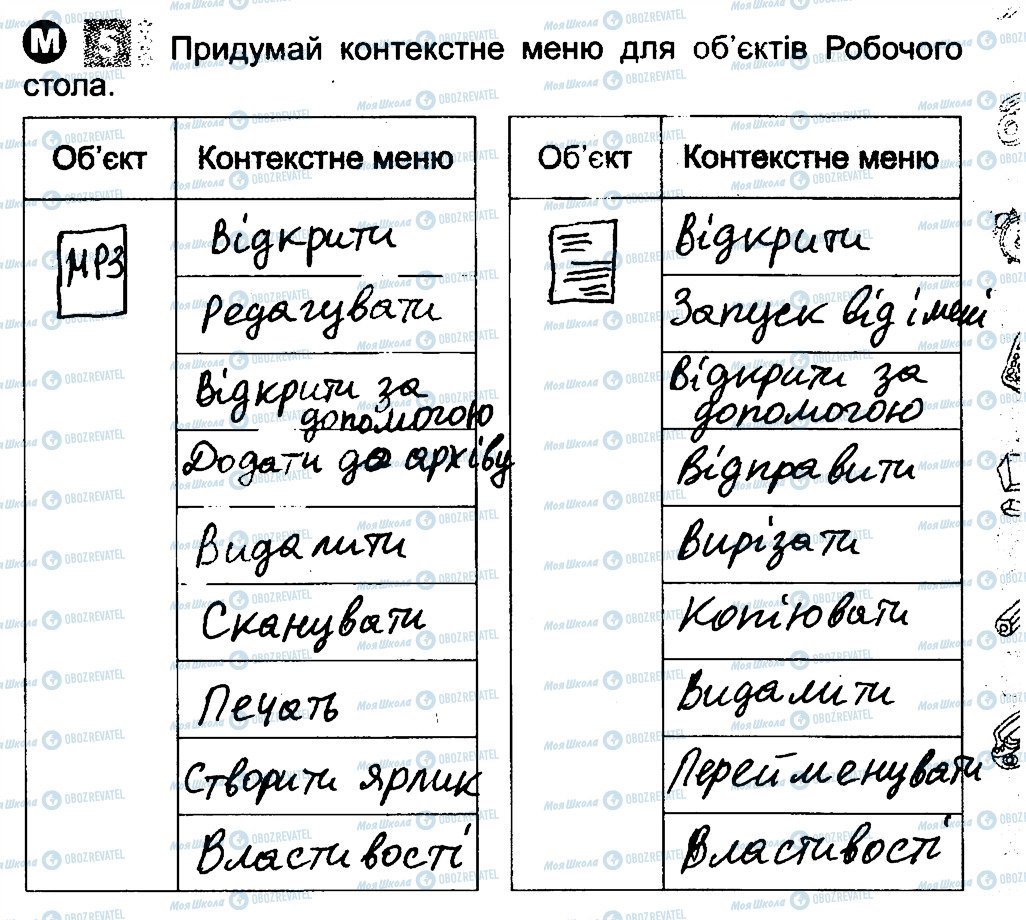 М 5 Придумай контекстне меню для об’єктів Робочого
стола.
Об’єкт Контекстне меню
МР3
Відкрити
Редагувати
Відкрити за
допомогою
Додати до архіву
Видалити
Сканувати
Печать
Створити ярлик
Властивості
Об’єкт Контекстне меню
Відкрити
Запуск від імені
Відкрити за
допомогою
Відправити
Вирізати
Копіювати
Видалити
Перейменувати
Властивості
МояШкола OBOZREVATEL